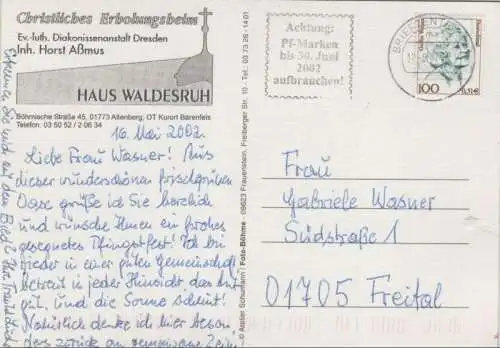 Christliches Erholungsheim
Ev.-luth. Diakonissenanstalt Dresden
Inh. Horst Aßmus
HAUS WALDESRUH
Böhmische Straße 45, 01773 Altenberg, OT Kurort Bärenfels
Telefon: 03 50 52 / 2 06 34
16. Mai 2002
Liebe Frau Wasner! Aus
dieser wunderschönen frischgrünen
Oase grüße ich Sie herzlich
und wünsche Ihnen ein frohes
gesegnetes Pfingstfest! Ich bin
wieder in einer guten Gemeinschaft
betreut in jeder Hinsicht, das tut
gut, und die Sonne scheint!
Natürlich denke ich hier beson-
ders zurück an gemeinsame Zeiten
Erkennen Sie mich auf dem Bild?
Ihre Traudl
© Atelier Schumann / Foto-Böhme · 09623 Frauenstein, Freiberger Str. 10 · Tel. 03 73 26 - 14 01
Achtung:
Pf-Marken
bis 30. Juni
2002
aufbrauchen!
BRIEFZEN
100
0,51€
Frau
Gabriele Wasner
Südstraße 1
01705 Freital